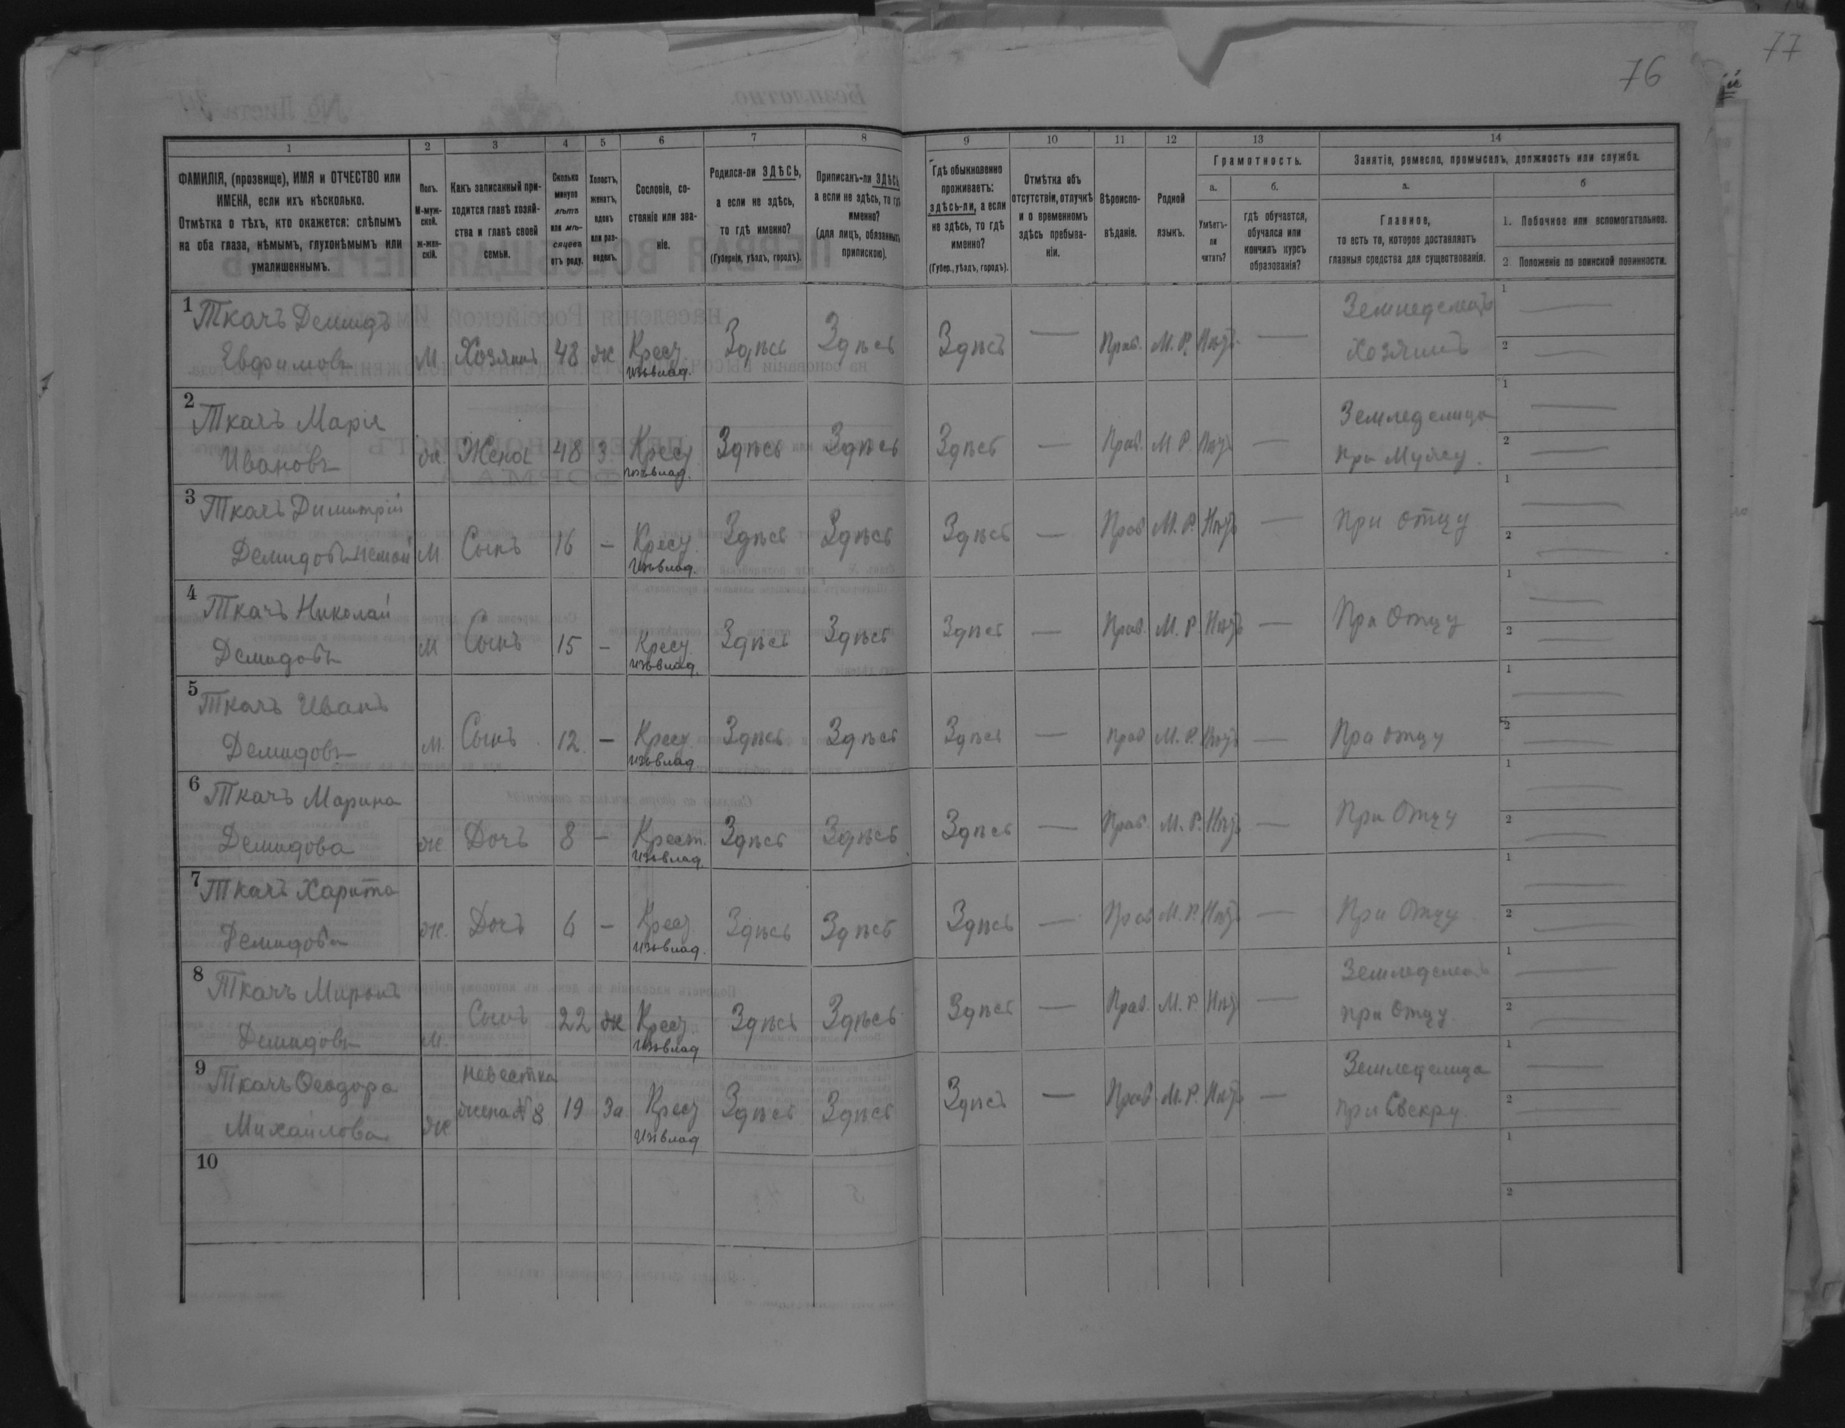 77
76
1
2
3
4
5
6
7
8
9
10
11
12
13
14
ФАМИЛІЯ, (прозвище), ИМЯ и ОТЧЕСТВО или
ИМЕНА, если ихъ нѣсколько.
Отмѣтка о тѣхъ, кто окажется: слѣпымъ
на оба глаза, нѣмымъ, глухонѣмымъ или
умалишеннымъ.
Полъ.
М-муж-
ской.
ж-жен-
скій.
Какъ записанный при-
ходится главѣ хозяй-
ства и главѣ своей
семьи.
Сколько
минуло
лѣтъ
или мѣ-
сяцевъ
отъ роду.
Холостъ,
женатъ,
вдовъ
или раз-
веденъ.
Сословіе, со-
стояніе или зва-
ніе.
Родился-ли ЗДѢСЬ,
а если не здѣсь,
то гдѣ именно?
(Губернія, уѣздъ, городъ).
Приписанъ-ли ЗДѢСЬ,
а если не здѣсь, то гдѣ
именно?
(для лицъ, обязанныхъ
припискою).
Гдѣ обыкновенно
проживаетъ:
здѣсь-ли, а если
не здѣсь, то гдѣ
именно?
(Губер., уѣздъ, городъ).
Отмѣтка объ
отсутствіи, отлучкѣ
и о временномъ
здѣсь пребыва-
ніи.
Вѣроиспо-
вѣданіе.
Родной
языкъ.
Грамотность.
а.
Умѣетъ-
ли
читать?
б.
гдѣ обучается,
обучался или
кончилъ курсъ
образованія?
Занятія, ремесло, промыселъ, должность или служба.
а.
Главное,
то есть то, которое доставляетъ
главныя средства для существованія.
б
1. Побочное или вспомогательное.
2 Положеніе по воинской повинности.
1 Ткачъ Демидъ
Евфимовъ М. Хозяинъ 48 ж Крест. Здѣсь Здѣсь Здѣсь — Прав. М. Р. Нѣтъ — Земледелецъ
изъ влад. Хозяинъ
2 Ткачъ Марія
Ивановъ ж. Жена 48 З Крест. Здѣсь Здѣсь Здѣсь — Прав. М. Р. Нѣтъ — Земледелица
изъ влад. при Мужу.
3 Ткачъ Димитрій
Демидовъ немой М Сынъ 16 — Крест. Здѣсь Здѣсь Здѣсь — Прав. М. Р. Нѣтъ — При отцу
изъ влад.
4 Ткачъ Николай
Демидовъ М Сынъ 15 — Крест. Здѣсь Здѣсь Здѣсь — Прав. М. Р Нѣтъ — При Отцу
изъ влад.
5 Ткачъ Иванъ
Демидовъ М. Сынъ 12. — Крест. Здѣсь Здѣсь Здѣсь — Прав М. Р. Нѣтъ — При отцу
изъ влад
6 Ткачъ Марина
Демидова ж Дочь 8 — Крест. Здѣсь Здѣсь Здѣсь — Прав. М. Р. Нѣтъ — При Отцу
изъ влад.
7 Ткачъ Харита
Демидова ж. Дочь 6 — Крест. Здѣсь Здѣсь Здѣсь — Прав М. Р. Нѣтъ — При Отцу
изъ влад.
8 Ткачъ Миронъ
Демидовъ М. Сынъ 22 ж Крест. Здѣсь Здѣсь Здѣсь — Прав. М. Р Нѣтъ — Земледелецъ
изъ влад при Отцу.
9 Ткачъ Феодора невестка
Михайлова ж жена № 8 19 За Крест Здѣсь Здѣсь Здѣсь — Прав М. Р. Нѣтъ — Земледелица
изъ влад при Свекру.
10